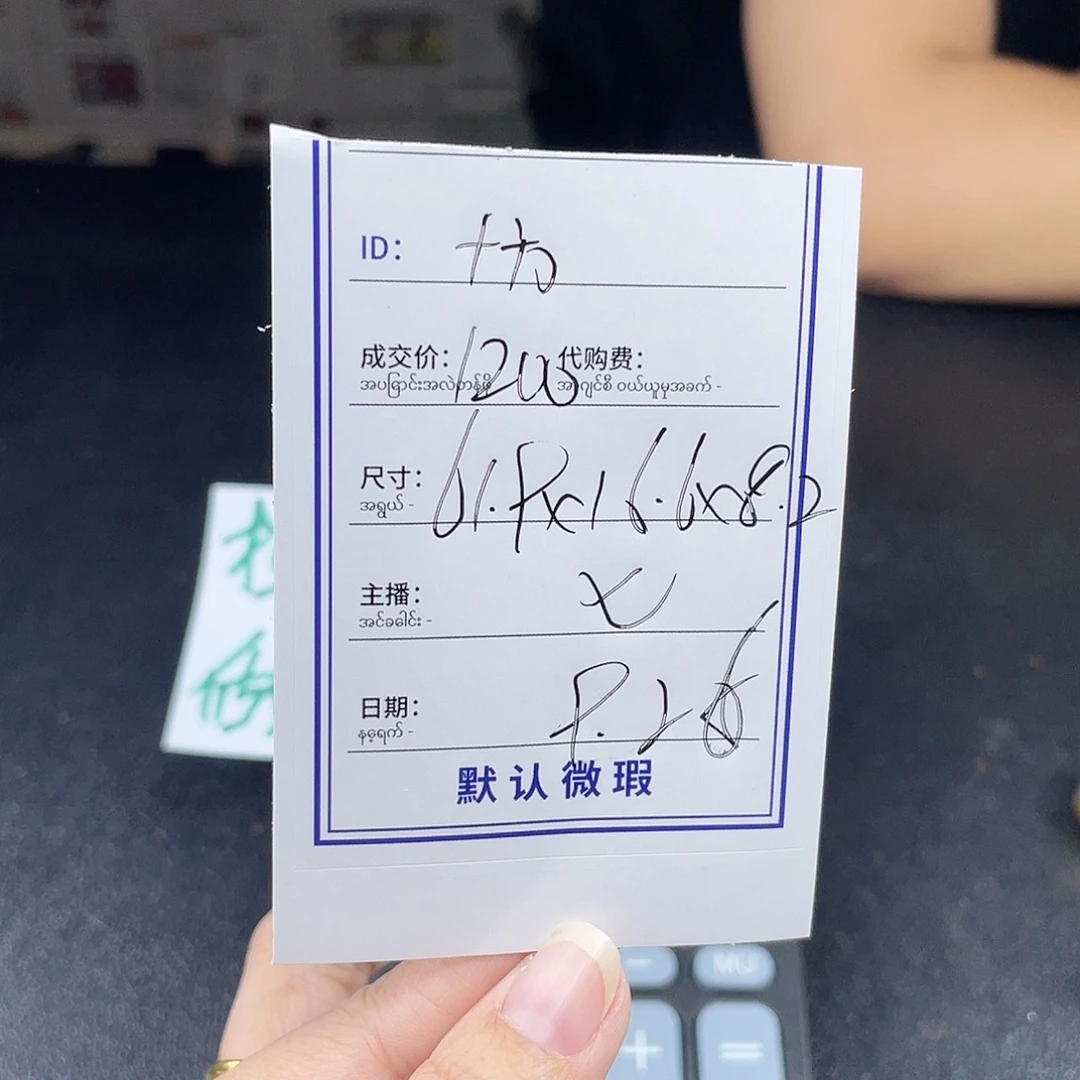 ID: 十九
成交价: 1200 代购费:
အပြောင်းအလဲတန်ဖိုး အကျင့်စီ ဝယ်ယူမှုအခက် -
尺寸: 61.9x16.6x8.2
အရွယ် -
主播: 七
အင်ခေါင်း -
日期: 9.26
နေ့ရက် -
默认微瑕
+
=